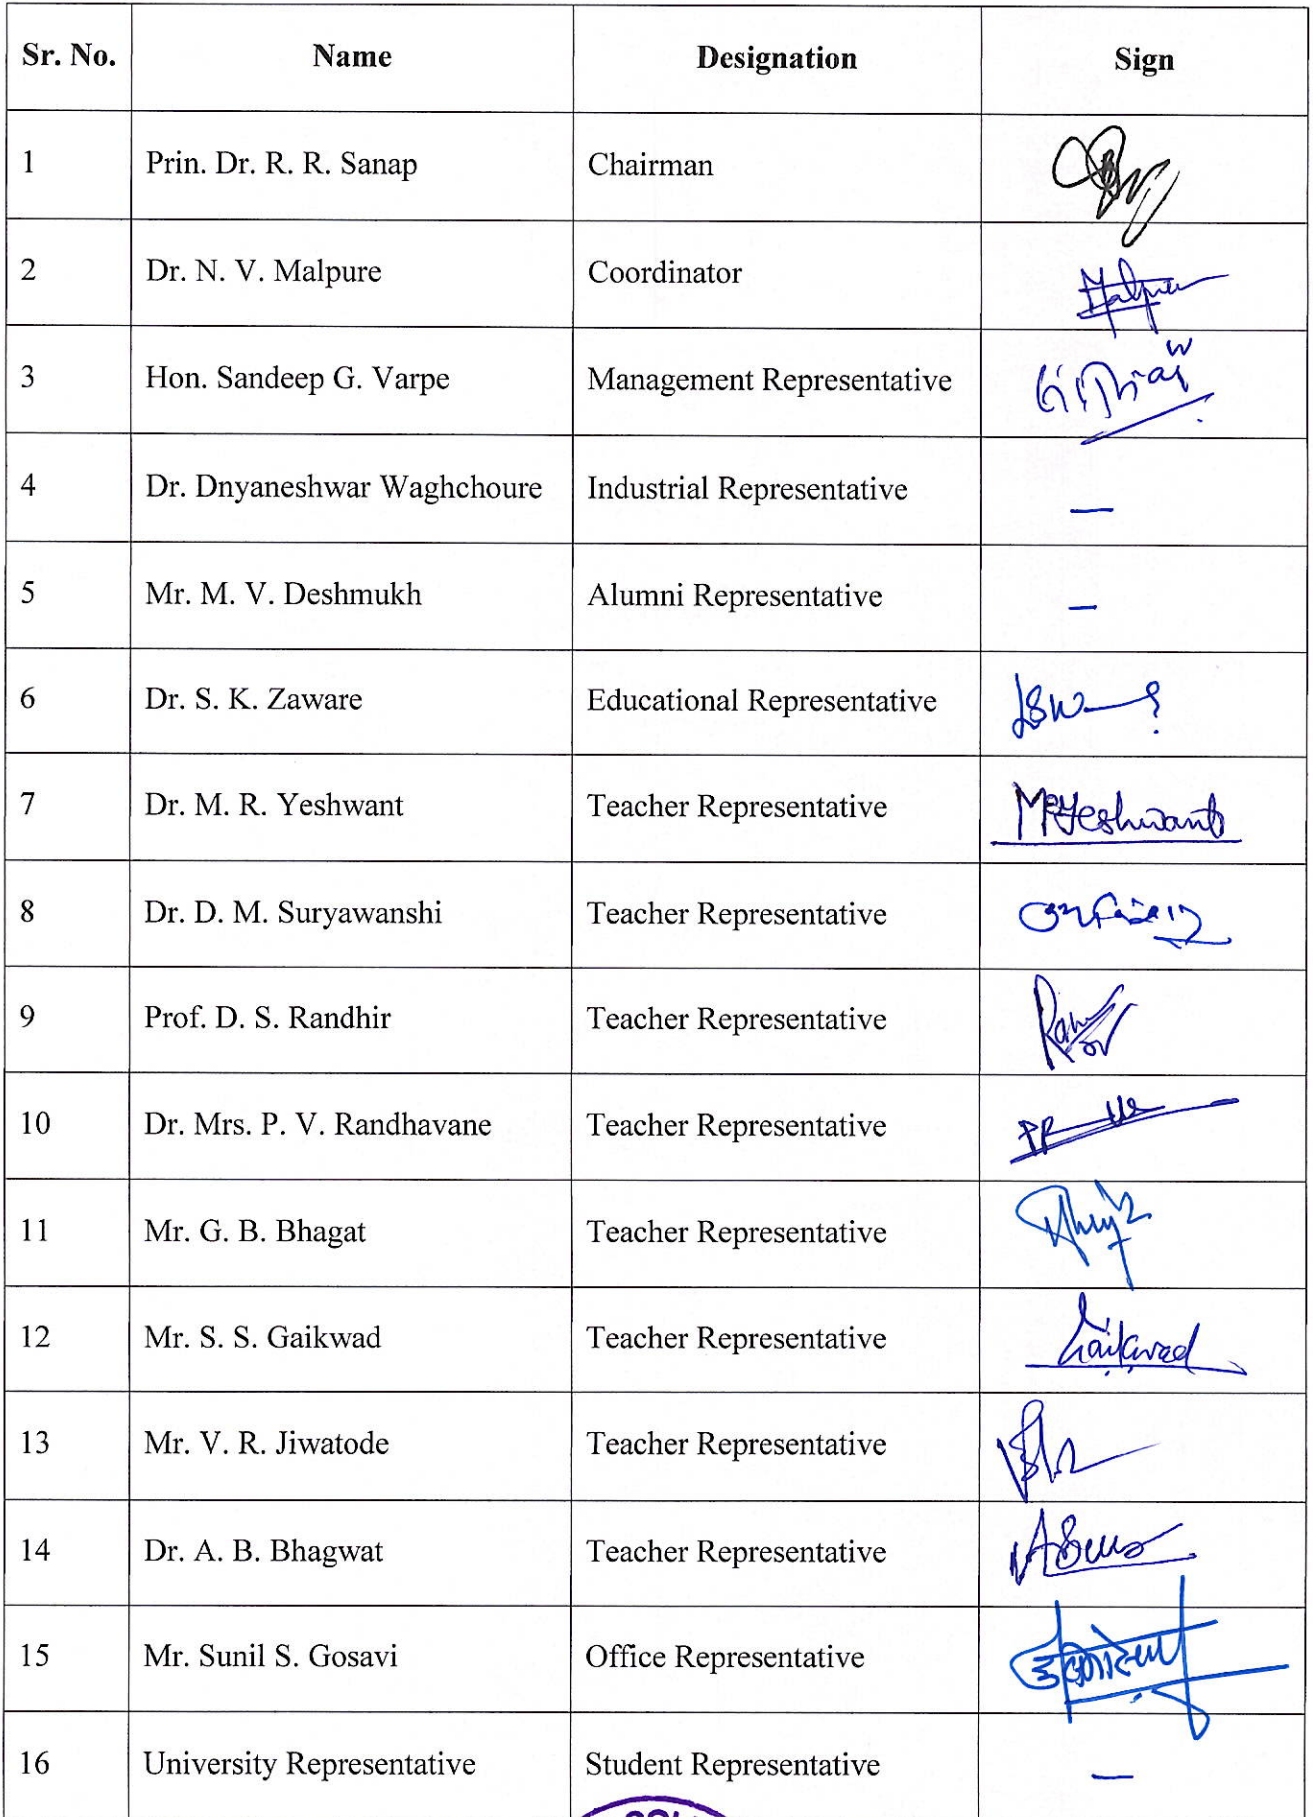 Sr. No. Name Designation Sign
1 Prin. Dr. R. R. Sanap Chairman
2 Dr. N. V. Malpure Coordinator Malpure
3 Hon. Sandeep G. Varpe Management Representative
4 Dr. Dnyaneshwar Waghchoure Industrial Representative —
5 Mr. M. V. Deshmukh Alumni Representative —
6 Dr. S. K. Zaware Educational Representative
7 Dr. M. R. Yeshwant Teacher Representative MRYeshwant
8 Dr. D. M. Suryawanshi Teacher Representative
9 Prof. D. S. Randhir Teacher Representative
10 Dr. Mrs. P. V. Randhavane Teacher Representative
11 Mr. G. B. Bhagat Teacher Representative
12 Mr. S. S. Gaikwad Teacher Representative Gaikwad
13 Mr. V. R. Jiwatode Teacher Representative
14 Dr. A. B. Bhagwat Teacher Representative
15 Mr. Sunil S. Gosavi Office Representative
16 University Representative Student Representative —